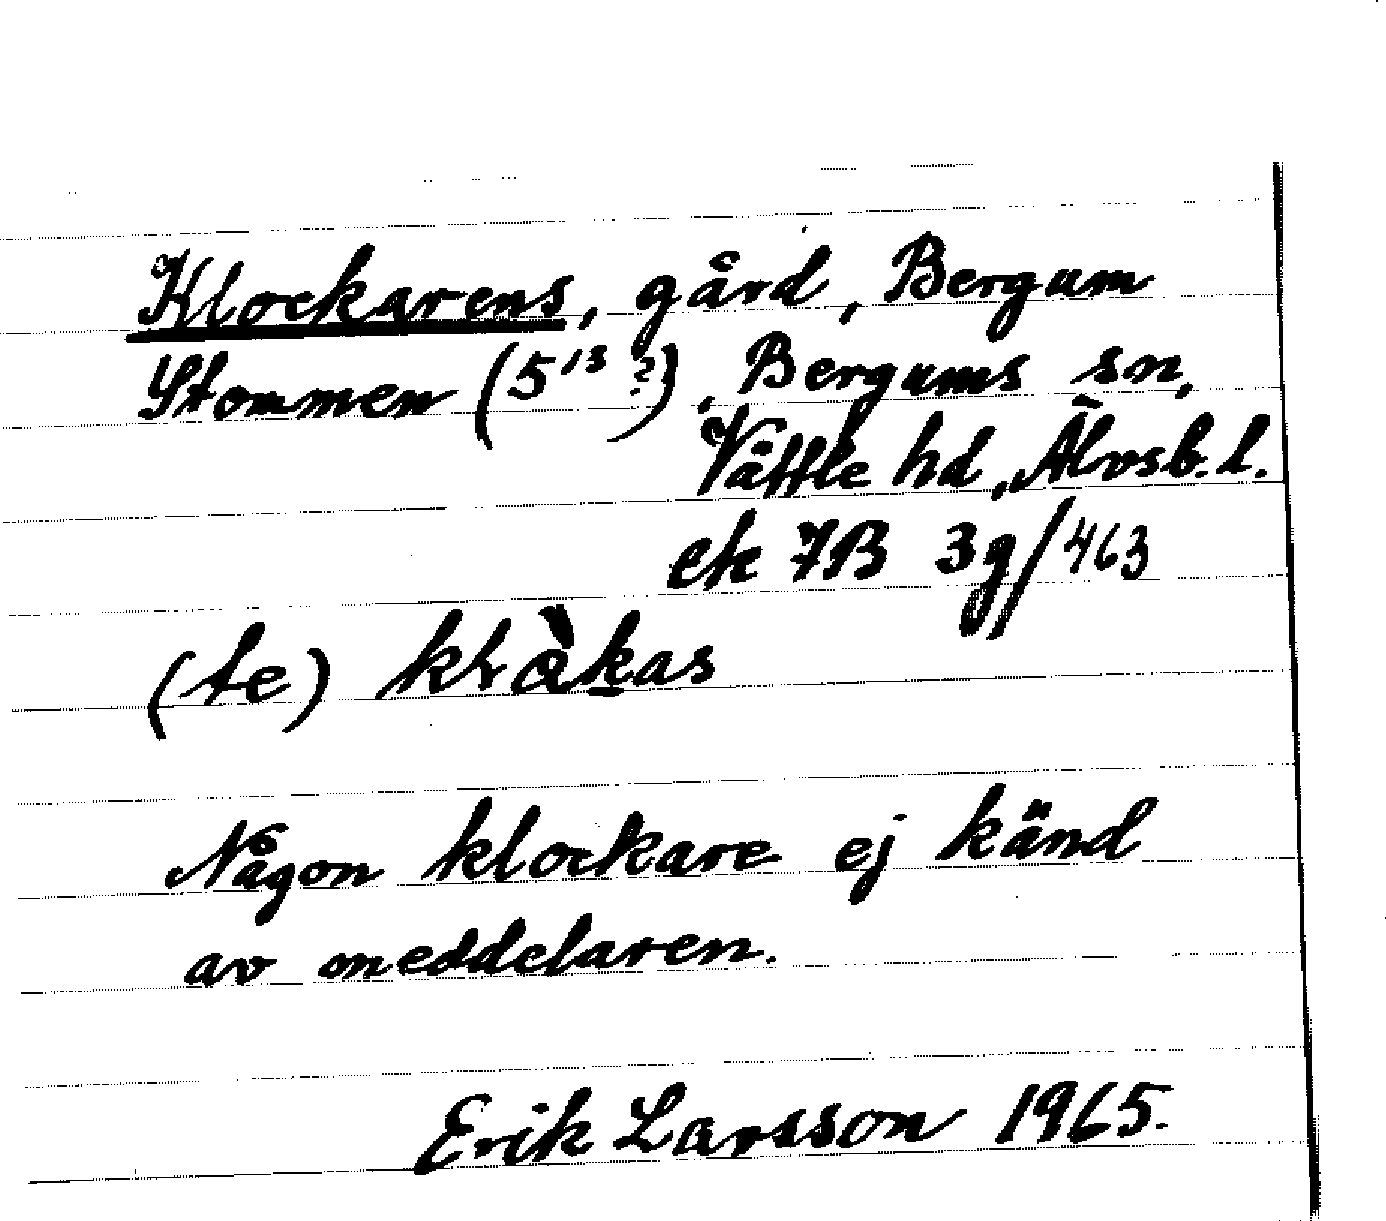 Klockarens, gård, Bergum
Stommen (5¹³ ?), Bergums sn,
Vättle hd, Älvsb. l.
ek 7B 3g/463
(te) klàkas
Någon klockare ej känd
av meddelaren.
Erik Larsson 1965.